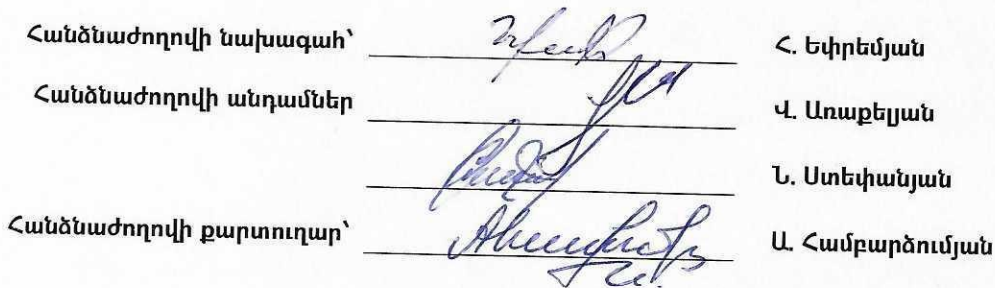 Հանձնաժողովի նախագահ՝ Հ. Եփրեմյան
Հանձնաժողովի անդամներ Վ. Առաքելյան
Ն. Ստեփանյան
Հանձնաժողովի քարտուղար՝ Ա. Համբարձումյան